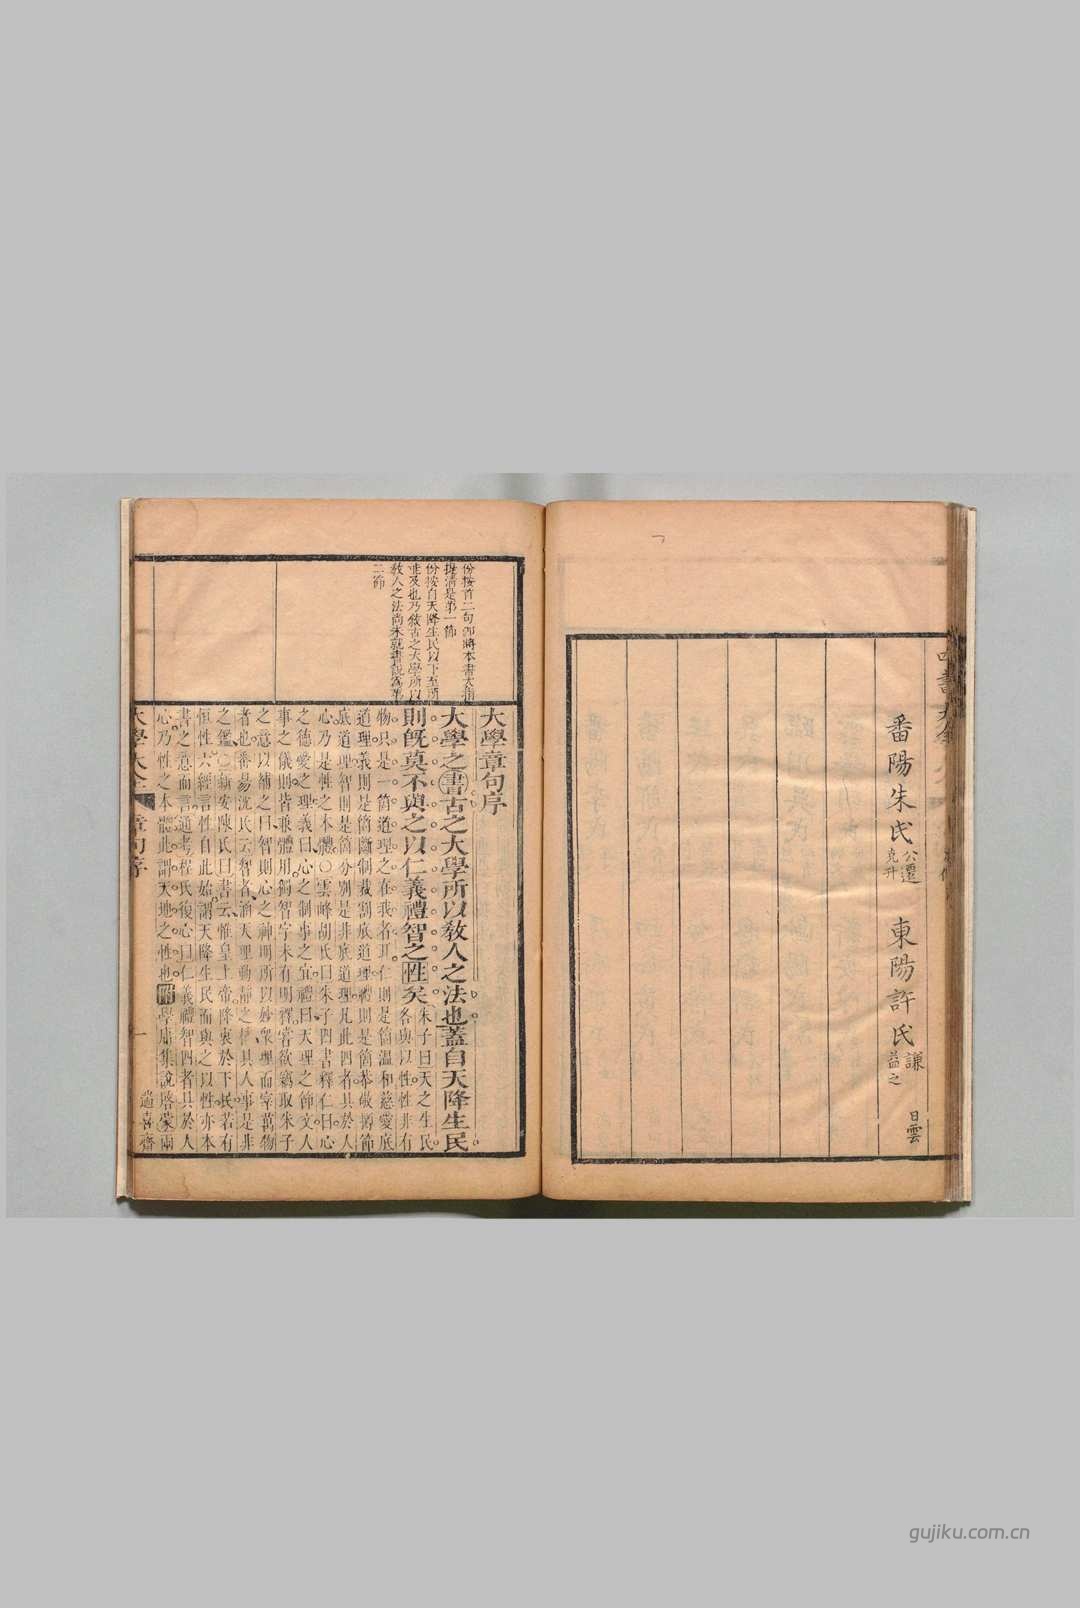 番陽朱氏公遷克升 東陽許氏謙益之 白雲
份按首二句卽將本書大指
提清是第一節
份按自天降生民以下至所
能及也乃敘古之大學所以
敎人之法尚未就書說爲第
二節
大學章句序
大學之書古之大學所以敎人之法也蓋自天降生民
則旣莫不與之以仁義禮智之性矣
朱子曰天之生民
各與以性性非有
物只是一箇道理之在我者耳仁則是箇溫和慈愛底
道理義則是箇斷制裁割底道理禮則是箇恭敬撙節
底道理智則是箇分別是非底道理凡此四者具於人
心乃是性之本體○雲峰胡氏曰朱子四書釋仁曰心
之德愛之理義曰心之制事之宜禮曰天理之節文人
事之儀則皆兼體用獨智字未有明釋嘗欲竊取朱子
之意以補之曰智則心之神明所以妙衆理而宰萬物
者也番昜沈氏云智者涵天理動靜之機具人事是非
之鑑○新安陳氏曰書云惟皇上帝降衷於下民若有
恒性六經言性自此始謂天降生民而與之以性亦本
書之意而言通考程氏復心曰仁義禮智四者具於人
心乃性之本體此謂天地之性也附學庸集說啓蒙兩
大學大全 章句序 一 遄喜齋